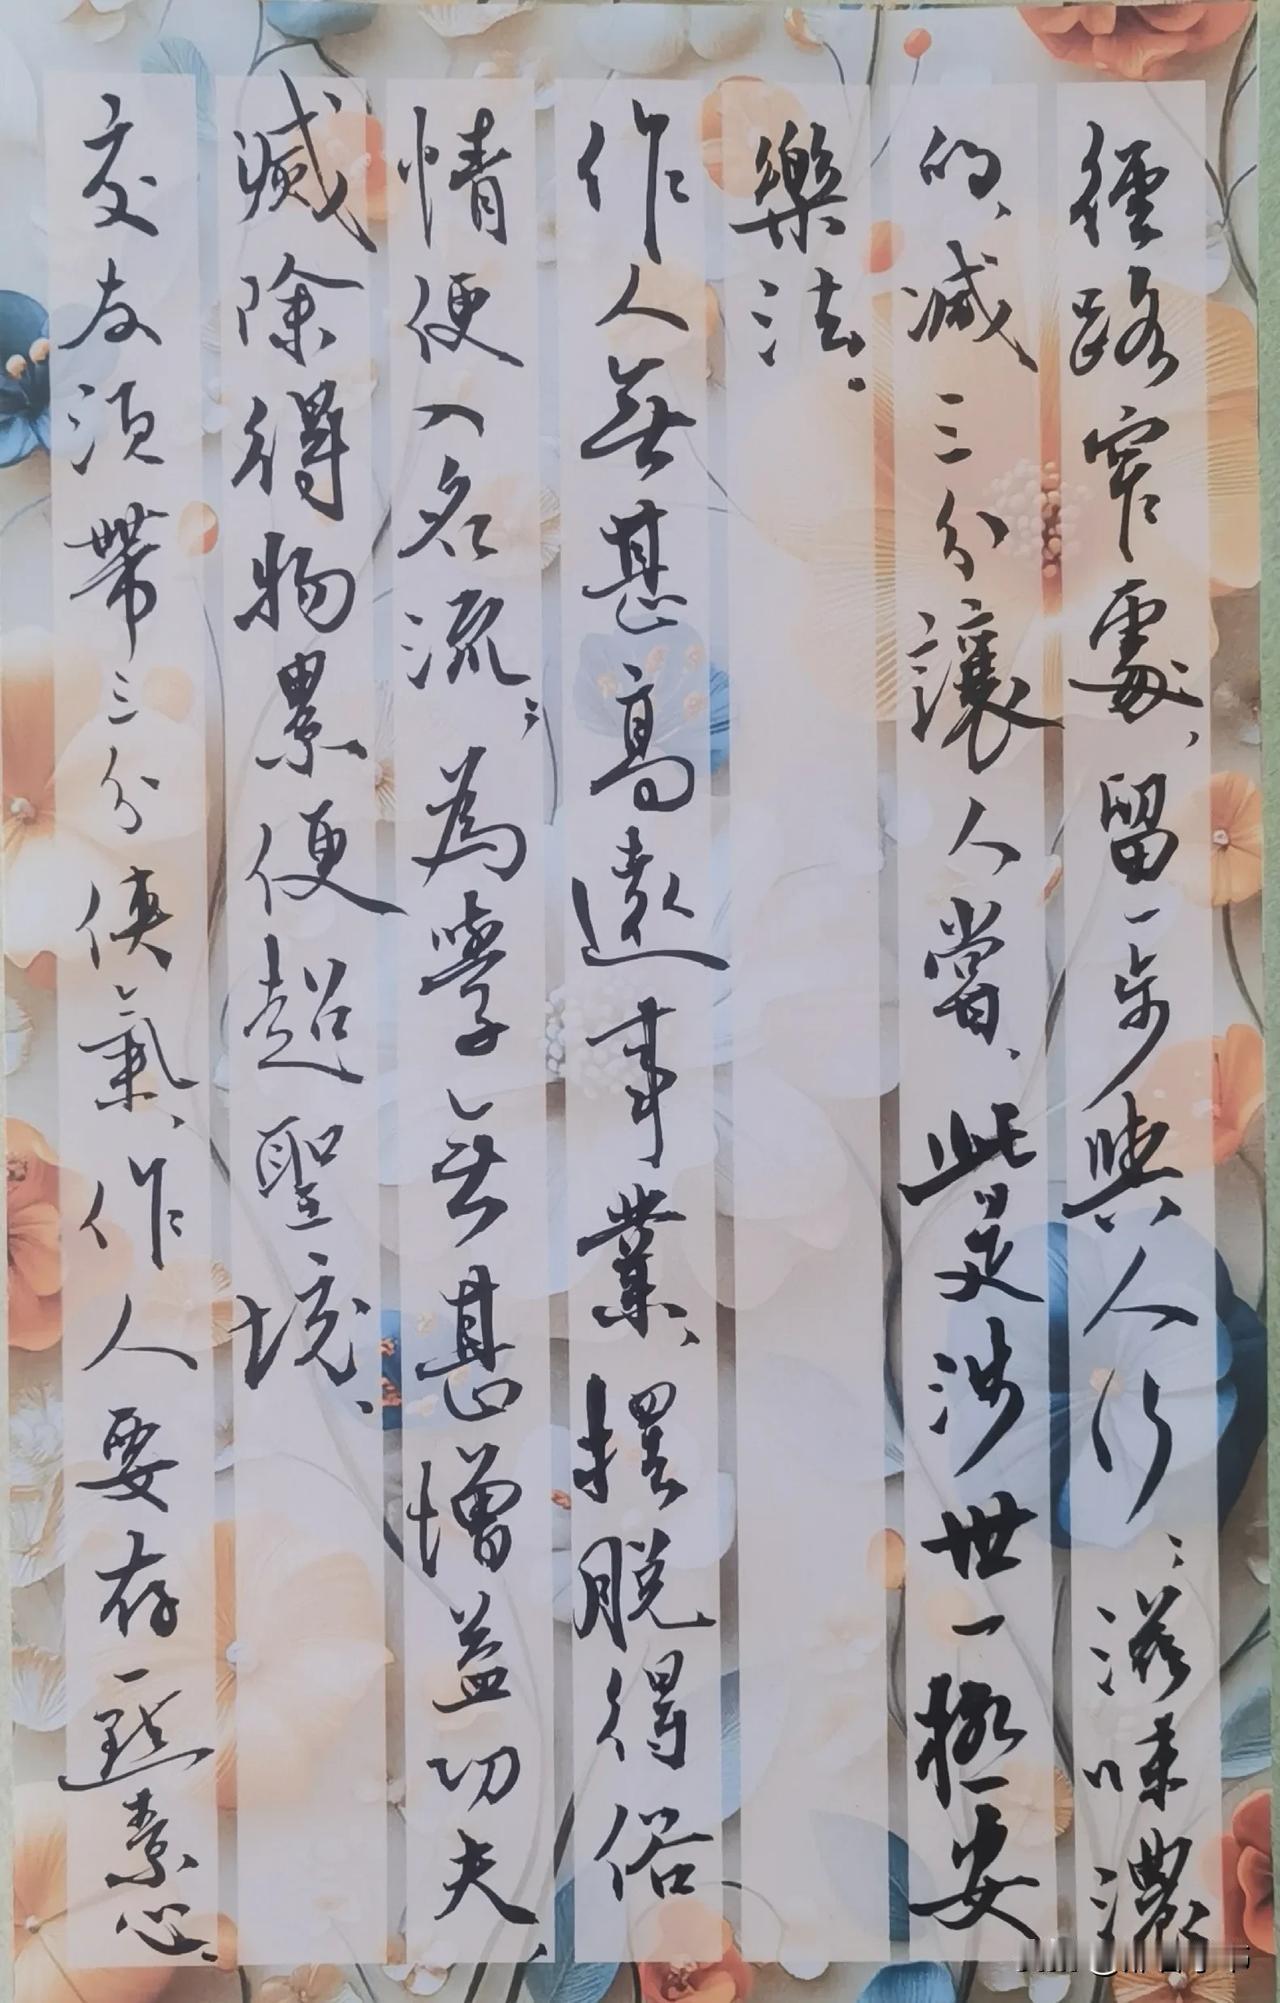 徑路窄處、留一步與人行；滋味濃
的、減三分讓人嘗、此是涉世一極安
樂法。
作人無甚高遠事業、擺脫得俗
情便入名流；為學無甚增益功夫、
減除得物累便超聖境、
交友須帶三分俠氣、作人要存一點素心。